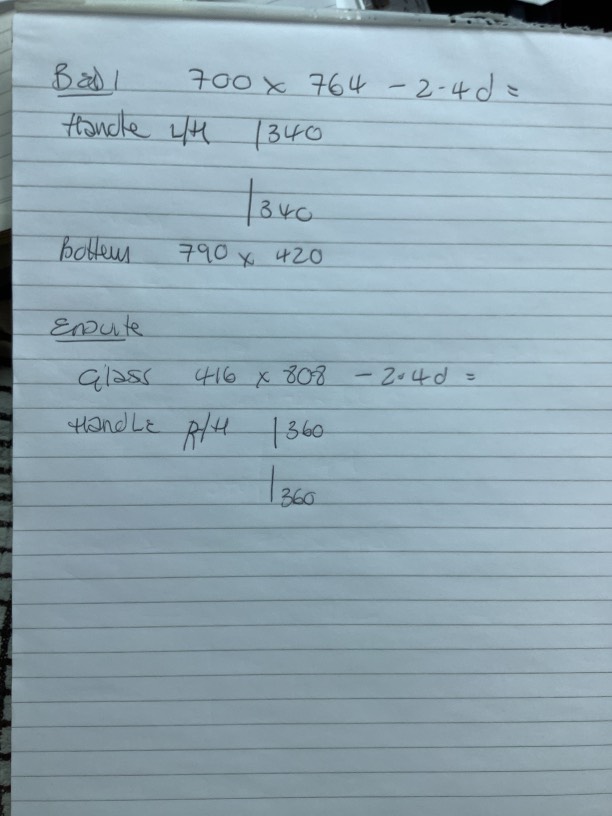 Bed 1 700 x 764 - 2.4d =
Handle L/H | 340
| 340
Bottem 790 x 420
Ensuite
Glass 416 x 808 - 2.4d =
Handle R/H | 360
| 360